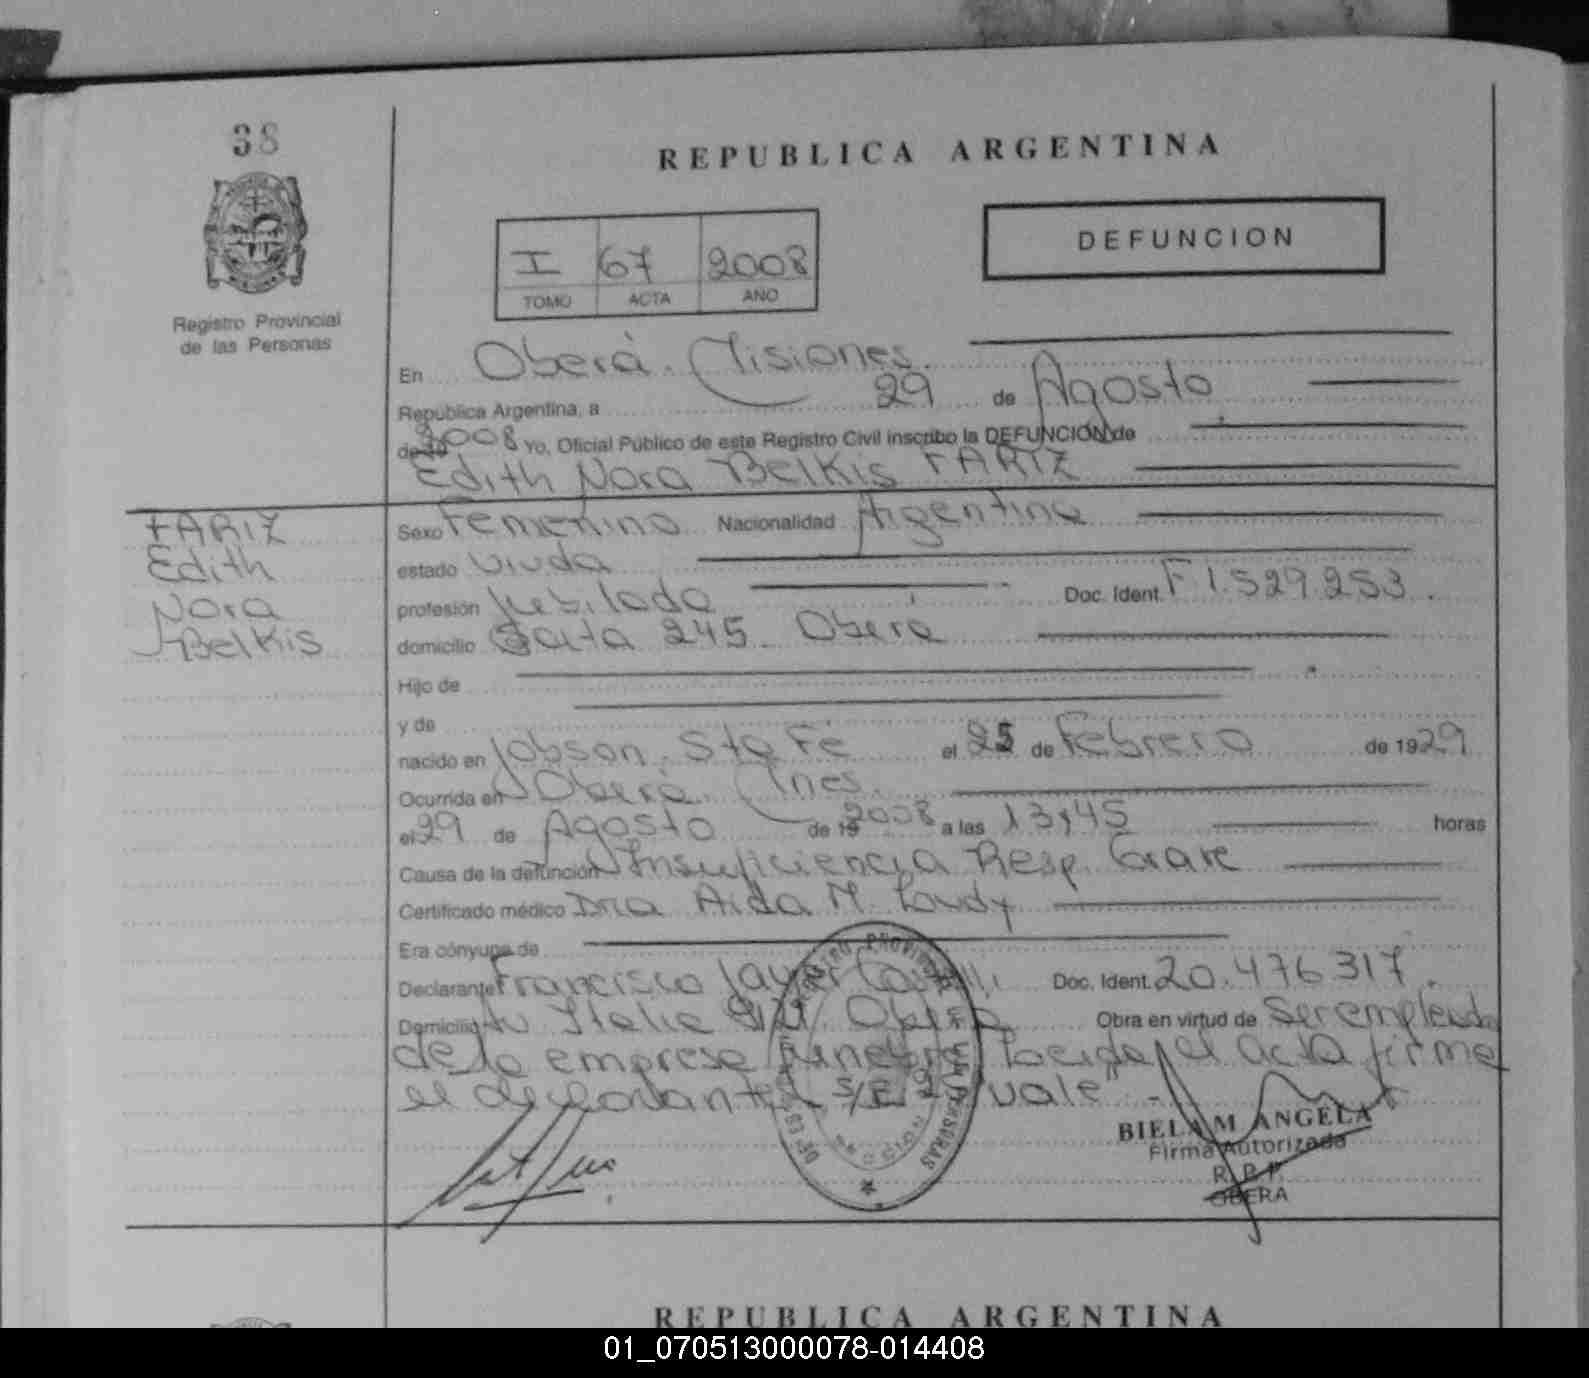 38
REPUBLICA ARGENTINA
DEFUNCION
I 67 2008
TOMO ACTA AÑO
Registro Provincial
de las Personas
En Oberá. Misiones.
Republica Argentina, a 29 de Agosto
de 2008 Yo, Oficial Publico de este Registro Civil inscribo la DEFUNCION de
Edith Nora Belkis FARIZ
FARIZ
Edith
Nora
Belkis
Sexo Femenino Nacionalidad Argentina
estado Viuda
profesión Jubilada Doc. Ident. F 1.529.253.
domicilio Salta 245. Oberá
Hijo de
y de
nacido en Jobson. Sta Fe el 25 de Febrero de 1929
Ocurrida en Oberá. Mnes.
el 29 de Agosto de 19 2008 a las 13,45 horas
Causa de la defunción Insuficiencia Resp. Grave
Certificado médico Dra Aida M.
Era cónyuge de
Declarante Francisco Javier Doc. Ident. 20.476317.
Domicilio Av Italia Oberá Obra en virtud de Ser empleado
de la empresa funebre el acta firma
el declarante S/E 2 "vale"
BIELA M ANGELA
Firma Autorizada
R. P. P.
OBERA
REPUBLICA ARGENTINA
01_070513000078-014408